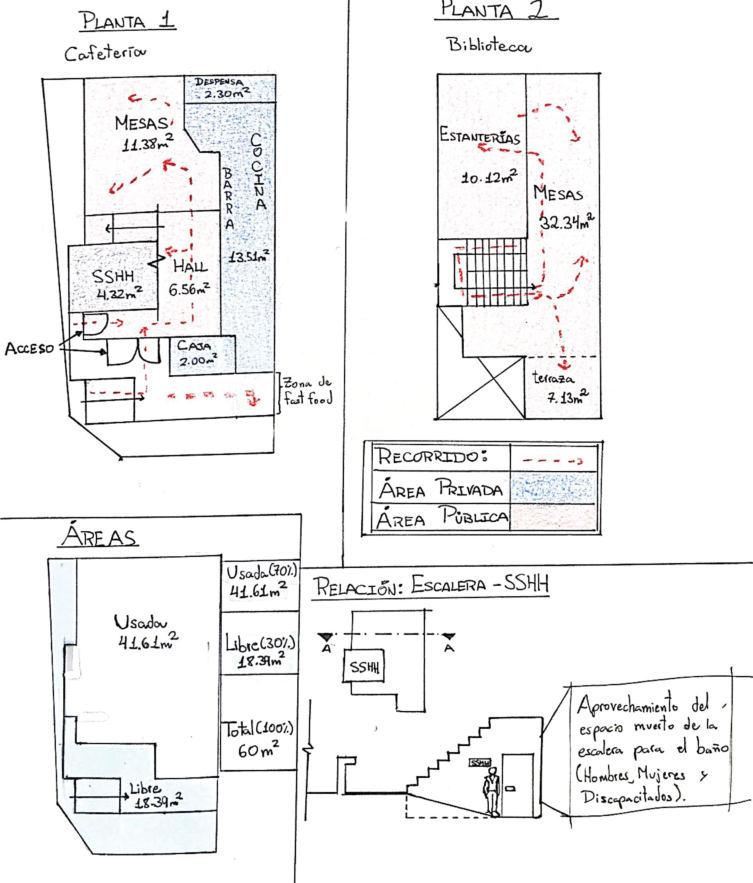 PLANTA 1
Cafetería
DESPENSA
2.30m²
MESAS
11.38m²
COCINA
BARRA
13.51m²
SSHH
4.32m²
HALL
6.56m²
ACCESO
CAJA
2.00m²
Zona de
fast food
PLANTA 2
Biblioteca
ESTANTERÍAS
10.12m²
MESAS
32.34m²
terraza
7.13m²
RECORRIDO:
ÁREA PRIVADA
ÁREA PÚBLICA
ÁREAS
Usada
41.61m²
Libre
18.39m²
Usada(70%)
41.61m²
Libre(30%)
18.39m²
Total(100%)
60m²
RELACIÓN: ESCALERA-SSHH
A
A
SSHH
SSHH
Aprovechamiento del
espacio muerto de la
escalera para el baño
(Hombres, Mujeres y
Discapacitados).